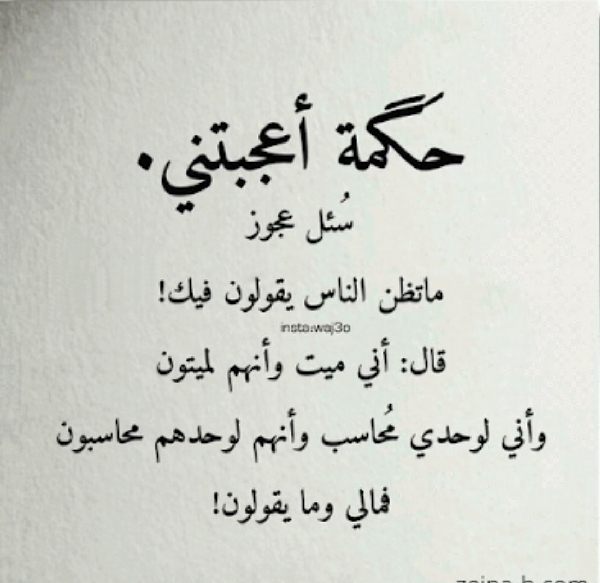 حكمة أعجبتني.
سُئل عجوز
ماتظن الناس يقولون فيك!
insta:waj3o
قال: أني ميت وأنهم لميتون
وأني لوحدي مُحاسب وأنهم لوحدهم محاسبون
فمالي وما يقولون!